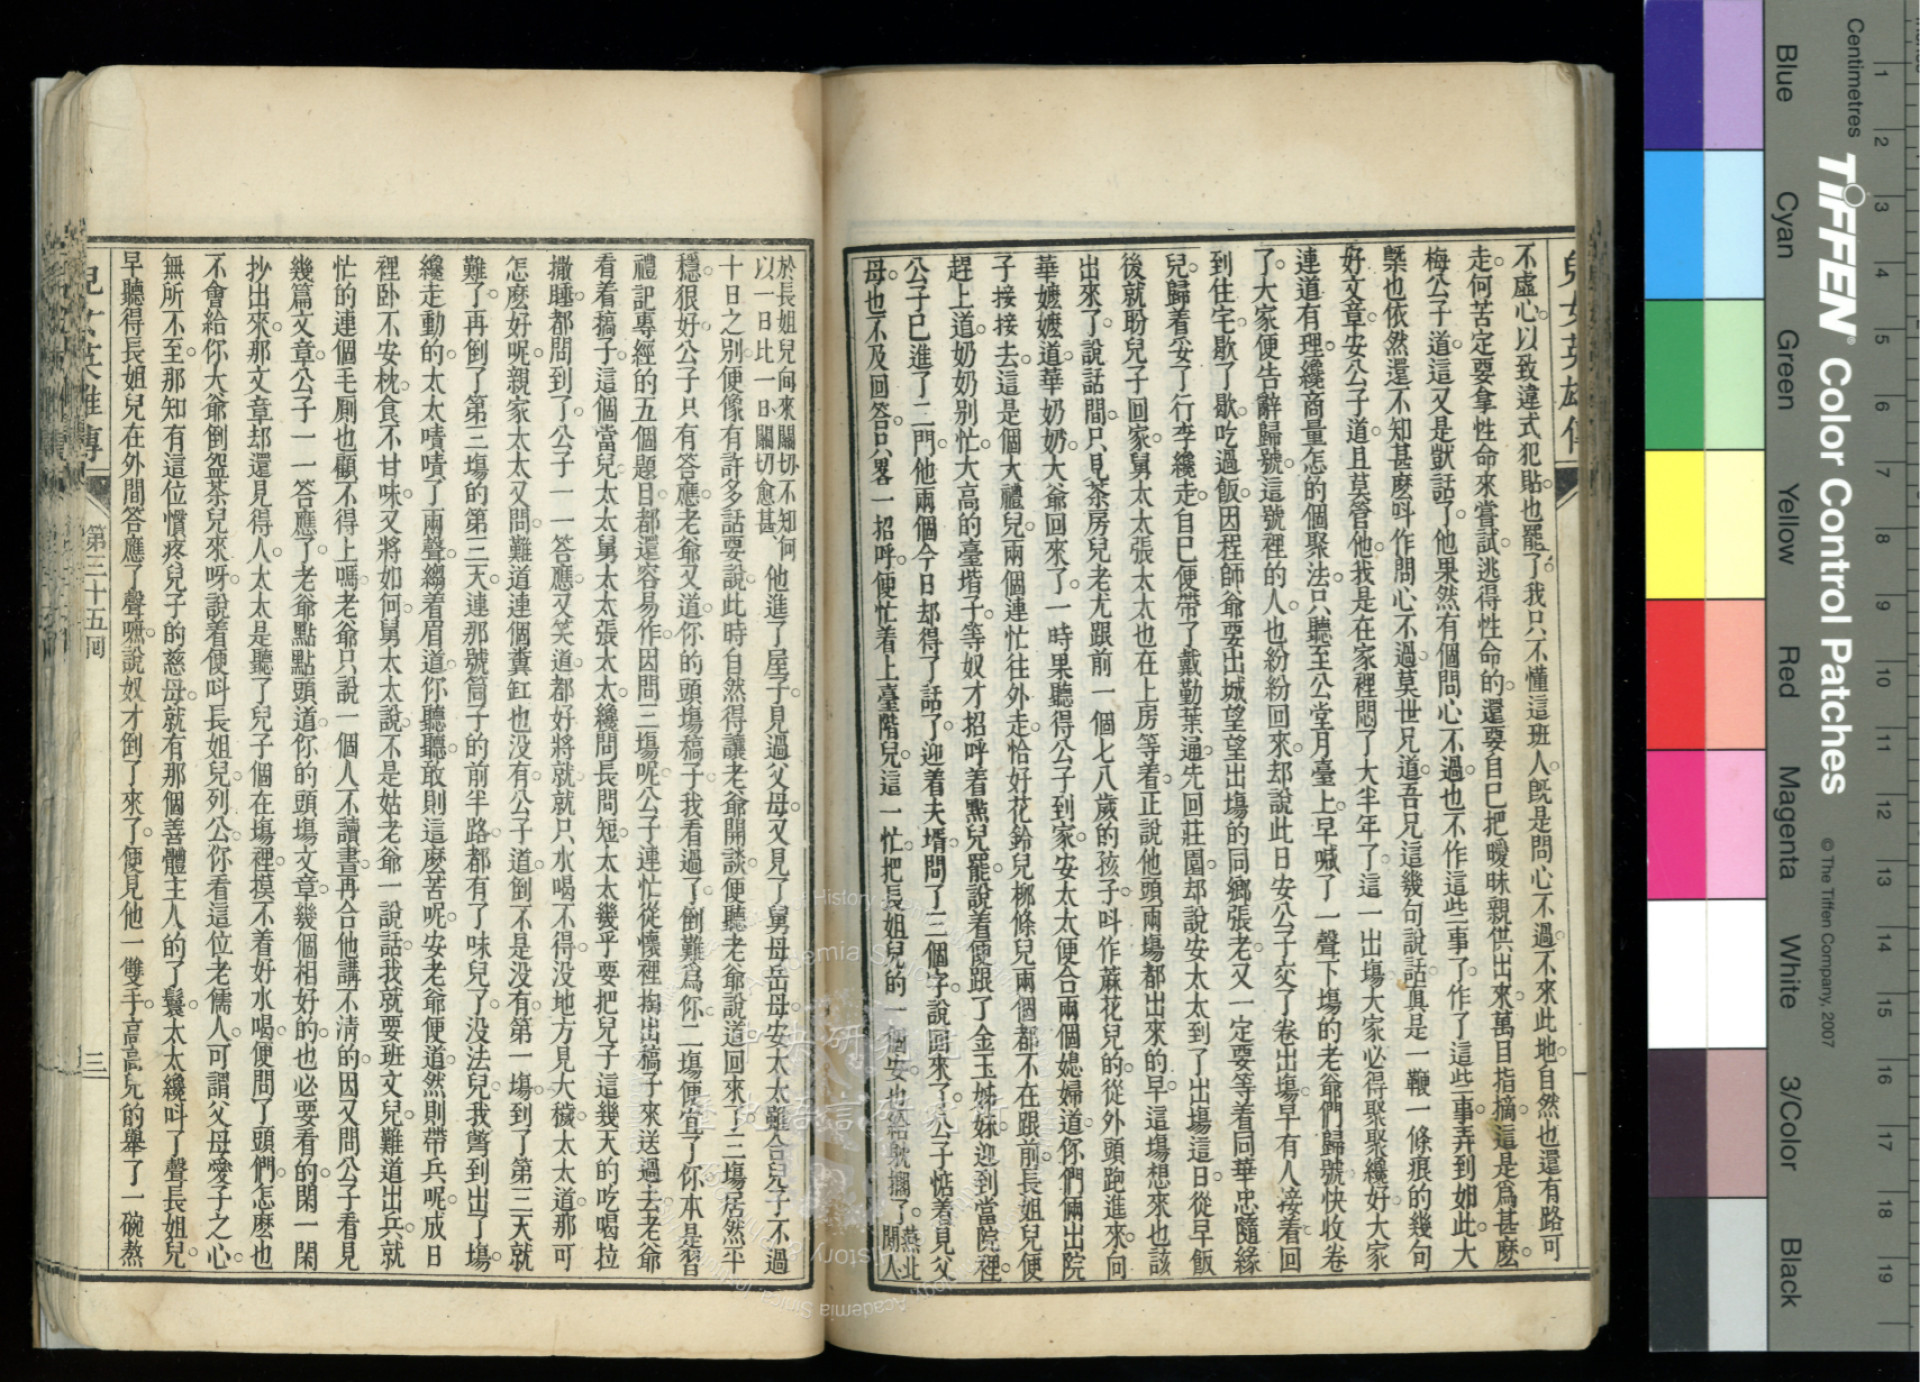 兒女英雄傳
不虛心以致違式犯貼也罷了我只不懂這班人旣是問心不過不來此地自然也還有路可
走何苦定要拿性命來嘗試逃得性命的還要自已把曖昧親供出來萬目指摘這是爲甚麽
梅公子道這又是獃話了他果然有個問心不過也不作這些事了作了這些事弄到如此大
槩也依然還不知甚麽呌作問心不過莫世兄道吾兄這幾句說話眞是一鞭一條痕的幾句
好文章安公子道且莫管他我是在家裡悶了大半年了這一出塲大家必得聚聚纔好大家
連道有理纔商量怎的個聚法只聽至公堂月臺上早喊了一聲下塲的老爺們歸號快收卷
了大家便告辭歸號這號裡的人也紛紛回來却說此日安公子交了卷出塲早有人接着回
到住宅歇了歇吃過飯因程師爺要出城望望出塲的同鄉張老又一定要等着同華忠隨緣
兒歸着妥了行李纔走自已便帶了戴勤葉通先回莊園却說安太太到了出塲這日從早飯
後就盼兒子回家舅太太張太太也在上房等着正說他頭兩塲都出來的早這塲想來也該
出來了說話間只見茶房兒老尤跟前一個七八歲的孩子呌作蔴花兒的從外頭跑進來向
華嬷嬷道華奶奶大爺回來了一時果聽得公子到家安太太便合兩個媳婦道你們倆出院
子接接去這是個大禮兒兩個連忙往外走恰好花鈴兒柳條兒兩個都不在跟前長姐兒便
趕上道奶奶別忙大高的臺堦子等奴才招呼着點兒罷說着便跟了金玉姊妹迎到當院裡
公子已進了二門他兩個今日却得了話了迎着夫壻問了三個字說回來了公子惦着見父
母也不及回答只畧一招呼便忙着上臺階兒這一忙把長姐兒的一個安也給躭擱了燕北閒人
於長姐兒向來關切不知何以一日比一日關切愈甚他進了屋子見過父母又見了舅母岳母安太太雖合兒子不過
十日之別便像有許多話要說此時自然得讓老爺開談便聽老爺說道回來了三塲居然平
穩狠好公子只有答應老爺又道你的頭塲稿子我看過了倒難爲你二塲便宜了你本是習
禮記專經的五個題目都還容易作因問三塲呢公子連忙從懷裡掏出稿子來送過去老爺
看着稿子這個當兒太太舅太太張太太纔問長問短太太幾乎要把兒子這幾天的吃喝拉
撒睡都問到了公子一一答應又笑道都好將就就只水喝不得沒地方見大穢太太道那可
怎麽好呢親家太太又問難道連個糞缸也没有公子道倒不是没有第一塲到了第三天就
難了再倒了第三塲的第三天連那號筒子的前半路都有了味兒了没法兒我彆到出了塲
纔走動的太太嘖嘖了兩聲縐着眉道你聽聽敢則這麽苦呢安老爺便道然則帶兵呢成日
裡卧不安枕食不甘味又將如何舅太太說不是姑老爺一說話我就要班文兒難道出兵就
忙的連個毛厠也顧不得上嗎老爺只說一個人不讀書再合他講不淸的因又問公子看見
幾篇文章公子一一答應了老爺點點頭道你的頭塲文章幾個相好的也必要看的閑一閑
抄出來那文章却還見得人太太是聽了兒子個在塲裡摸不着好水喝便問了頭們怎麽也
不會給你大爺倒盌茶兒來呀說着便呌長姐兒列公你看這位老儒人可謂父母愛子之心
無所不至那知有這位慣疼兒子的慈母就有那個善體主人的了鬟太太纔呌了聲長姐兒
早聽得長姐兒在外間答應了聲嘸說奴才倒了來了便見他一雙手高高兒的舉了一碗熬
兒女英雄傳
第三十五囘
三